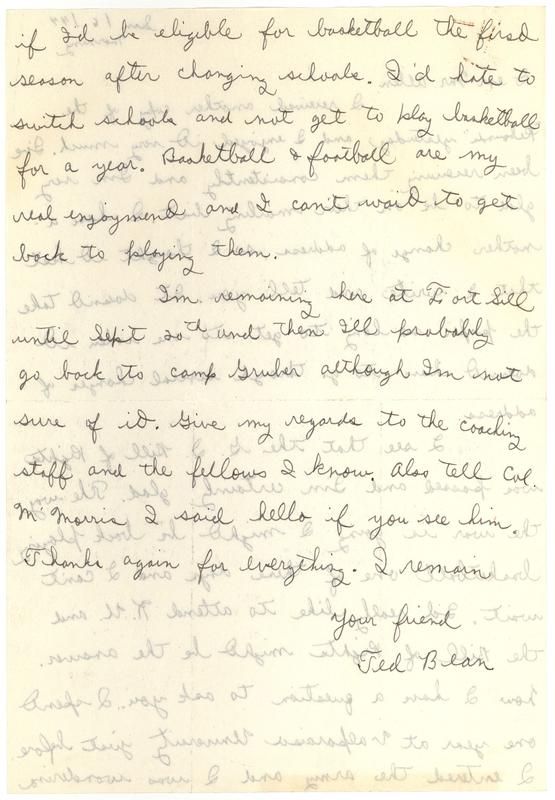 if I'd be eligible for basketball the first
season after changing schools. I'd hate to
switch schools and not get to play basketball
for a year. Basketball & football are my
real enjoyment and I can't wait to get
back to playing them.
I'm remaining here at Fort Sill
until Sept 20th and then I'll probably
go back to camp Gruber although I'm not
sure of it. Give my regards to the coaching
staff and the fellows I know. Also tell Col.
Mc Morris I said hello if you see him.
Thanks again for everything. I remain
Your friend
Ted Bean